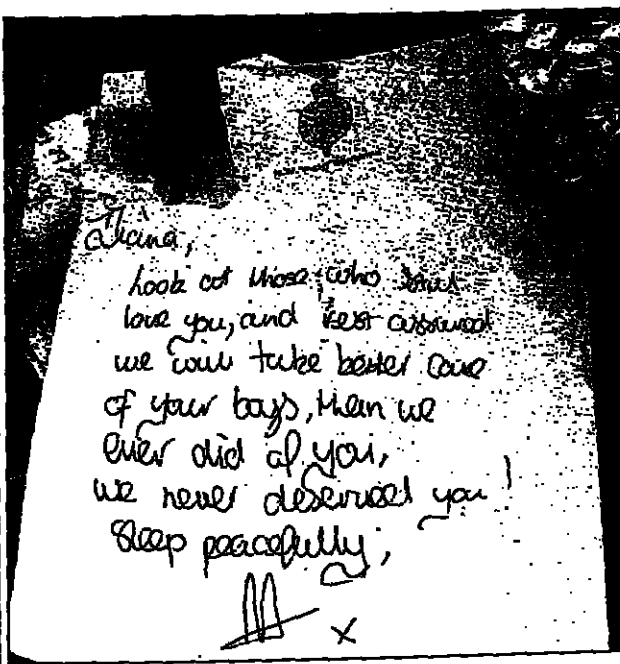 Diana,
Look at those who
love you, and rest assured
we will take better care
of your boys, then we
ever did of you,
we never deserved you!
Sleep peacefully,
x